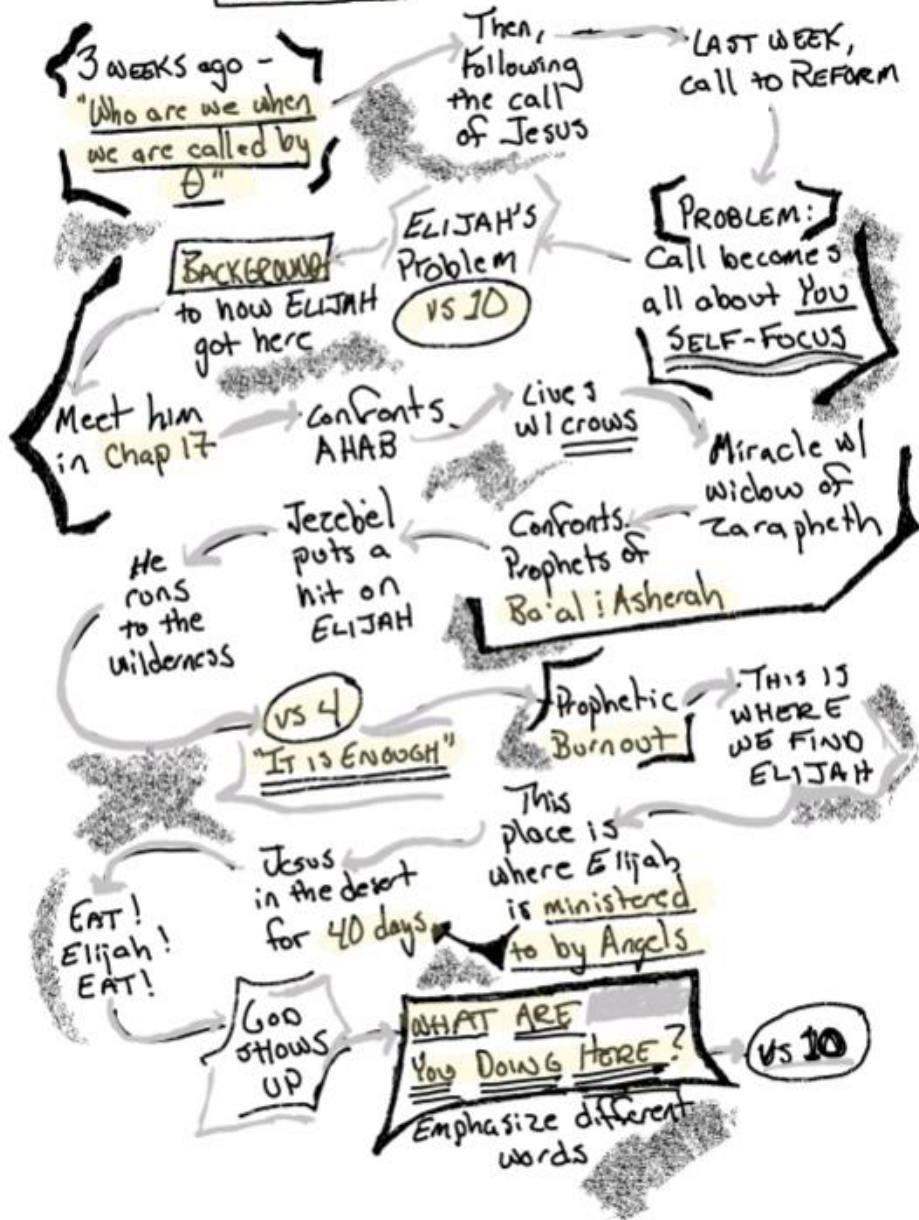 3 WEEKS ago -
"Who are we when
we are called by
Θ"
Then,
following
the call
of Jesus
LAST WEEK,
call to REFORM
PROBLEM:
Call becomes
all about You
SELF-FOCUS
ELIJAH'S
Problem
vs 10
BACKGROUND
to how ELIJAH
got here
Meet him
in Chap 17
Confronts
AHAB
Lives
w/ crows
Miracle w/
widow of
Zarapheth
Confronts
Prophets of
Ba'al & Asherah
Jezebel
puts a
hit on
ELIJAH
He
runs
to the
wilderness
vs 4
"IT IS ENOUGH"
Prophetic
Burnout
THIS IS
WHERE
WE FIND
ELIJAH
This
place is
where Elijah
is ministered
to by Angels
Jesus
in the desert
for 40 days
EAT!
Elijah!
EAT!
GOD
SHOWS
UP
WHAT ARE
YOU DOING HERE?
Emphasize different
words
vs 10